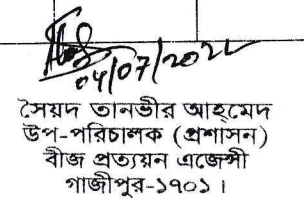 04/07/2022
সৈয়দ তানভীর আহমেদ
উপ-পরিচালক (প্রশাসন)
বীজ প্রত্যয়ন এজেন্সী
গাজীপুর-১৭০১।